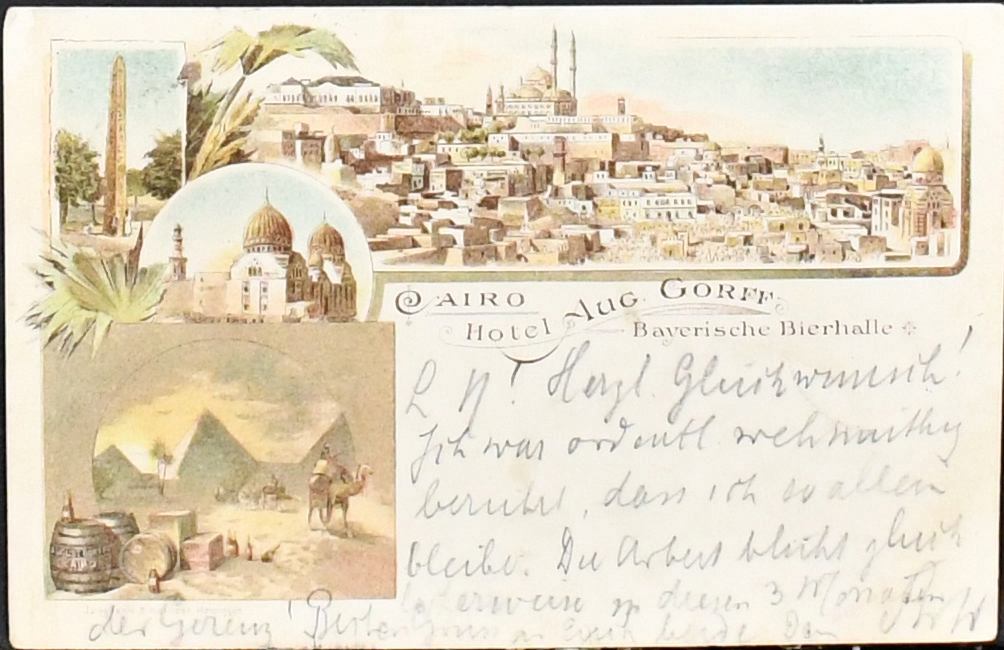 CAIRO
Hotel AUG. GORFF
Bayerische Bierhalle
L ! Herzl. Glückwunsch!
Ich war ordentl. wehmüthig
berührt, dass ich so allein
bleibe. Die Arbeit blüht glück
licherweise in diesen 3 Monaten
der ! Besten Gruss an Euch beide Dein